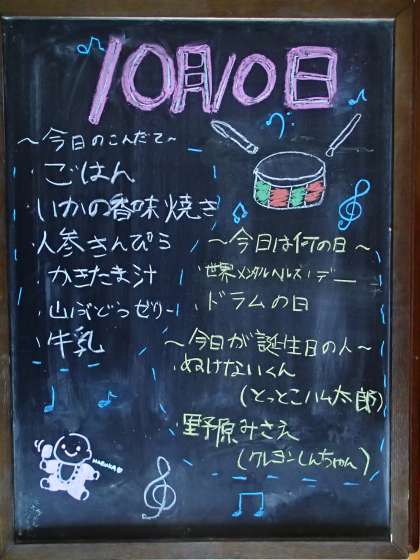 10月10日
~今日のこんだて~
・ごはん
・いかの香味焼き
・人参きんぴら
・かきたま汁
・山ぶどうゼリー
・牛乳
~今日は何の日~
・世界メンタルヘルス・デー
・ドラムの日
~今日が誕生日の人~
・ぬけないくん
(とっとこハム太郎)
・野原みさえ
(クレヨンしんちゃん)